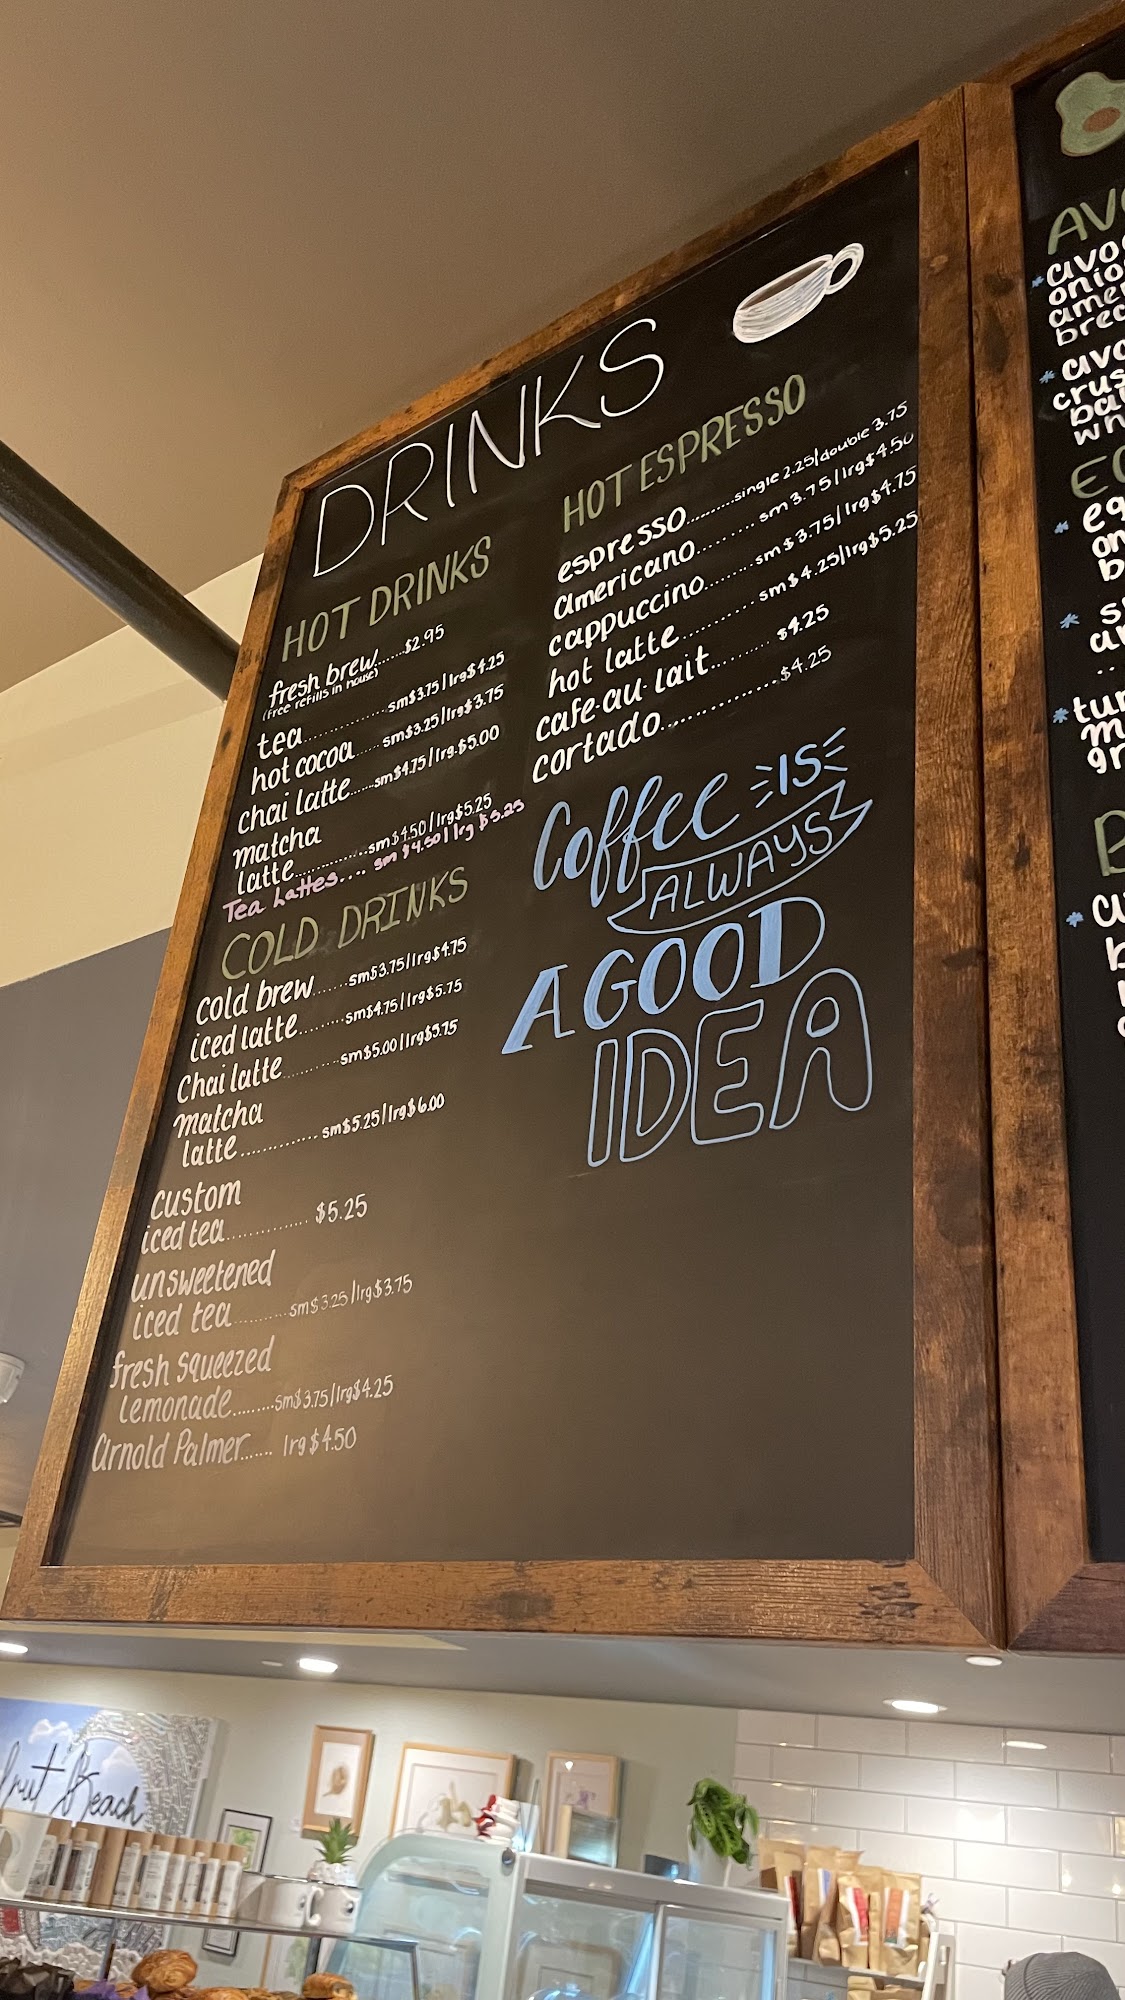 DRINKS
HOT DRINKS
fresh brew.......$2.95
(free refills in house)
tea................sm$3.75/lrg$4.25
hot cocoa.....sm$3.25/lrg$3.75
chai latte.......sm$4.75/lrg.$5.00
matcha
latte...............sm$4.50/lrg$5.25
Tea Lattes.... sm $4.50/lrg $5.25
COLD DRINKS
cold brew......sm$3.75/lrg$4.75
iced latte.........sm$4.75/lrg$5.75
Chai latte...........sm$5.00/lrg$5.75
matcha
latte.............sm$5.25/lrg$6.00
custom
iced tea.............. $5.25
unsweetened
iced tea..........sm$3.25/lrg$3.75
fresh squeezed
lemonade.........sm$3.75/lrg$4.25
Arnold Palmer...... lrg$4.50
HOT ESPRESSO
espresso..........single 2.25/double 3.75
americano......... sm 3.75/lrg$4.50
cappuccino.........sm$3.75/lrg$4.75
hot latte........... sm$4.25/lrg$5.25
cafe-au-lait.......... $4.25
cortado................$4.25
Coffee IS
ALWAYS
A GOOD
IDEA
Beach